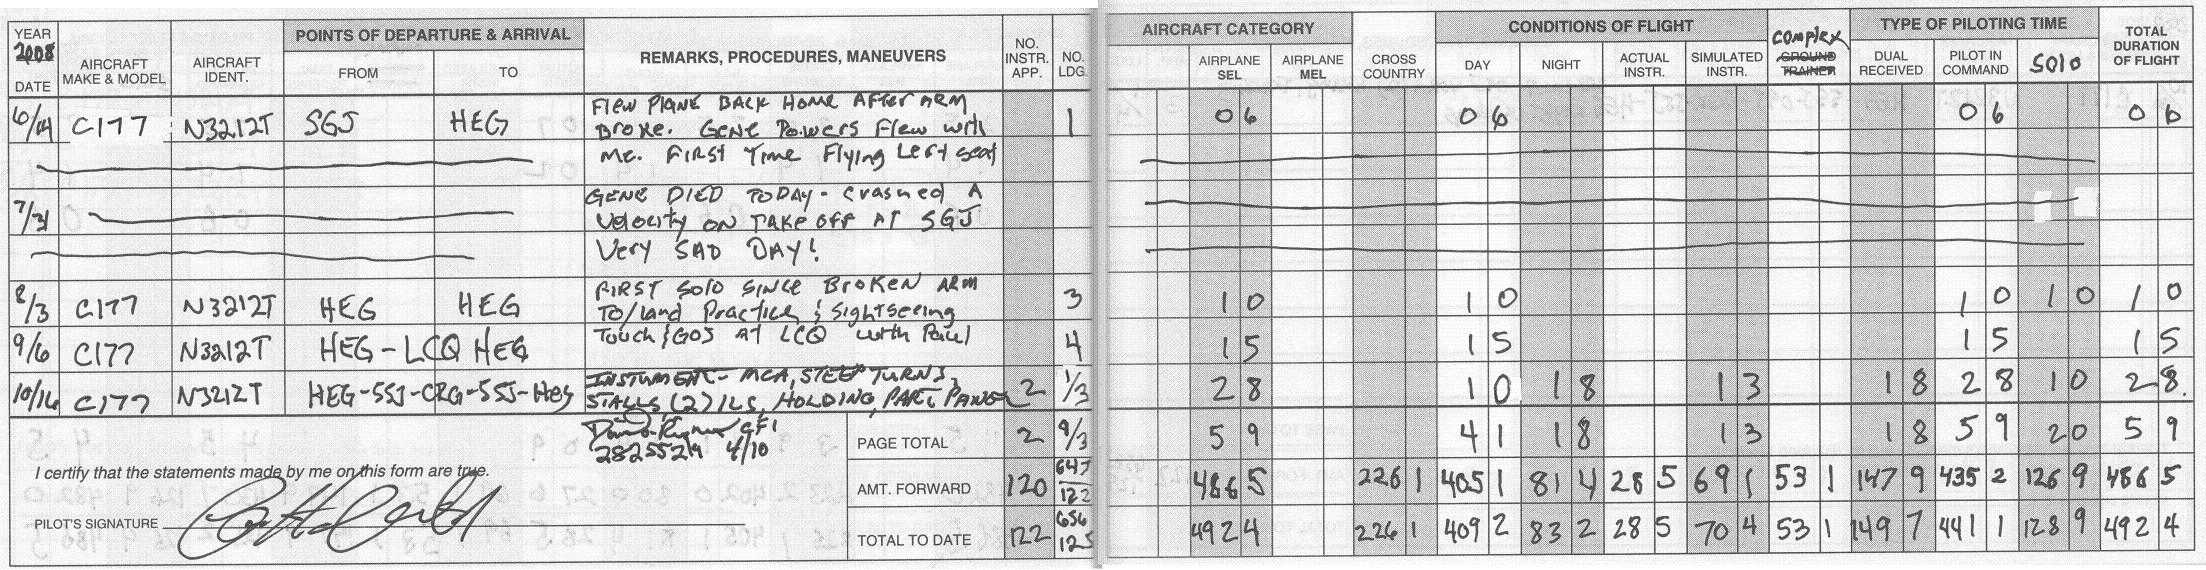 YEAR 2008 DATE AIRCRAFT MAKE & MODEL AIRCRAFT IDENT. POINTS OF DEPARTURE & ARRIVAL FROM TO REMARKS, PROCEDURES, MANEUVERS NO. INSTR. APP. NO. LDG. AIRCRAFT CATEGORY AIRPLANE SEL AIRPLANE MEL CROSS COUNTRY CONDITIONS OF FLIGHT DAY NIGHT ACTUAL INSTR. SIMULATED INSTR. COMPLEX GROUND TRAINER TYPE OF PILOTING TIME DUAL RECEIVED PILOT IN COMMAND SOLO TOTAL DURATION OF FLIGHT
6/14 C177 N3212T SGJ HEG Flew Plane Back Home After Arm 1 0 6 0 6 0 6 0 6
Broke. Gene Powers Flew with
me. First Time Flying Left seat
7/31 GENE DIED TODAY - Crashed A
Velocity ON TAKE OFF AT SGJ
Very SAD DAY!
8/3 C177 N3212T HEG HEG FIRST SOLO SINCE BROKEN ARM 3 1 0 1 0 1 0 1 0 1 0
TO/land Practice & Sightseeing
9/6 C177 N3212T HEG - LCQ HEG Touch & GOs AT LCQ with Paul 4 1 5 1 5 1 5 1 5
10/16 C177 N3212T HEG-55J-CRG-55J-Heg INSTUMENT- MCA, STEEP TURNS, 2 1/3 2 8 1 0 1 8 1 3 1 8 2 8 1 0 2 8
STALLS (2) ILS, HOLDING, PART PANEL
CFI PAGE TOTAL 2 9/3 5 9 4 1 1 8 1 3 1 8 5 9 2 0 5 9
4/10
I certify that the statements made by me on this form are true.
AMT. FORWARD 120 647/122 486 5 226 1 405 1 81 4 28 5 69 1 53 1 147 9 435 2 126 9 486 5
PILOT'S SIGNATURE TOTAL TO DATE 122 656 125 492 4 226 1 409 2 83 2 28 5 70 4 53 1 149 7 441 1 128 9 492 4